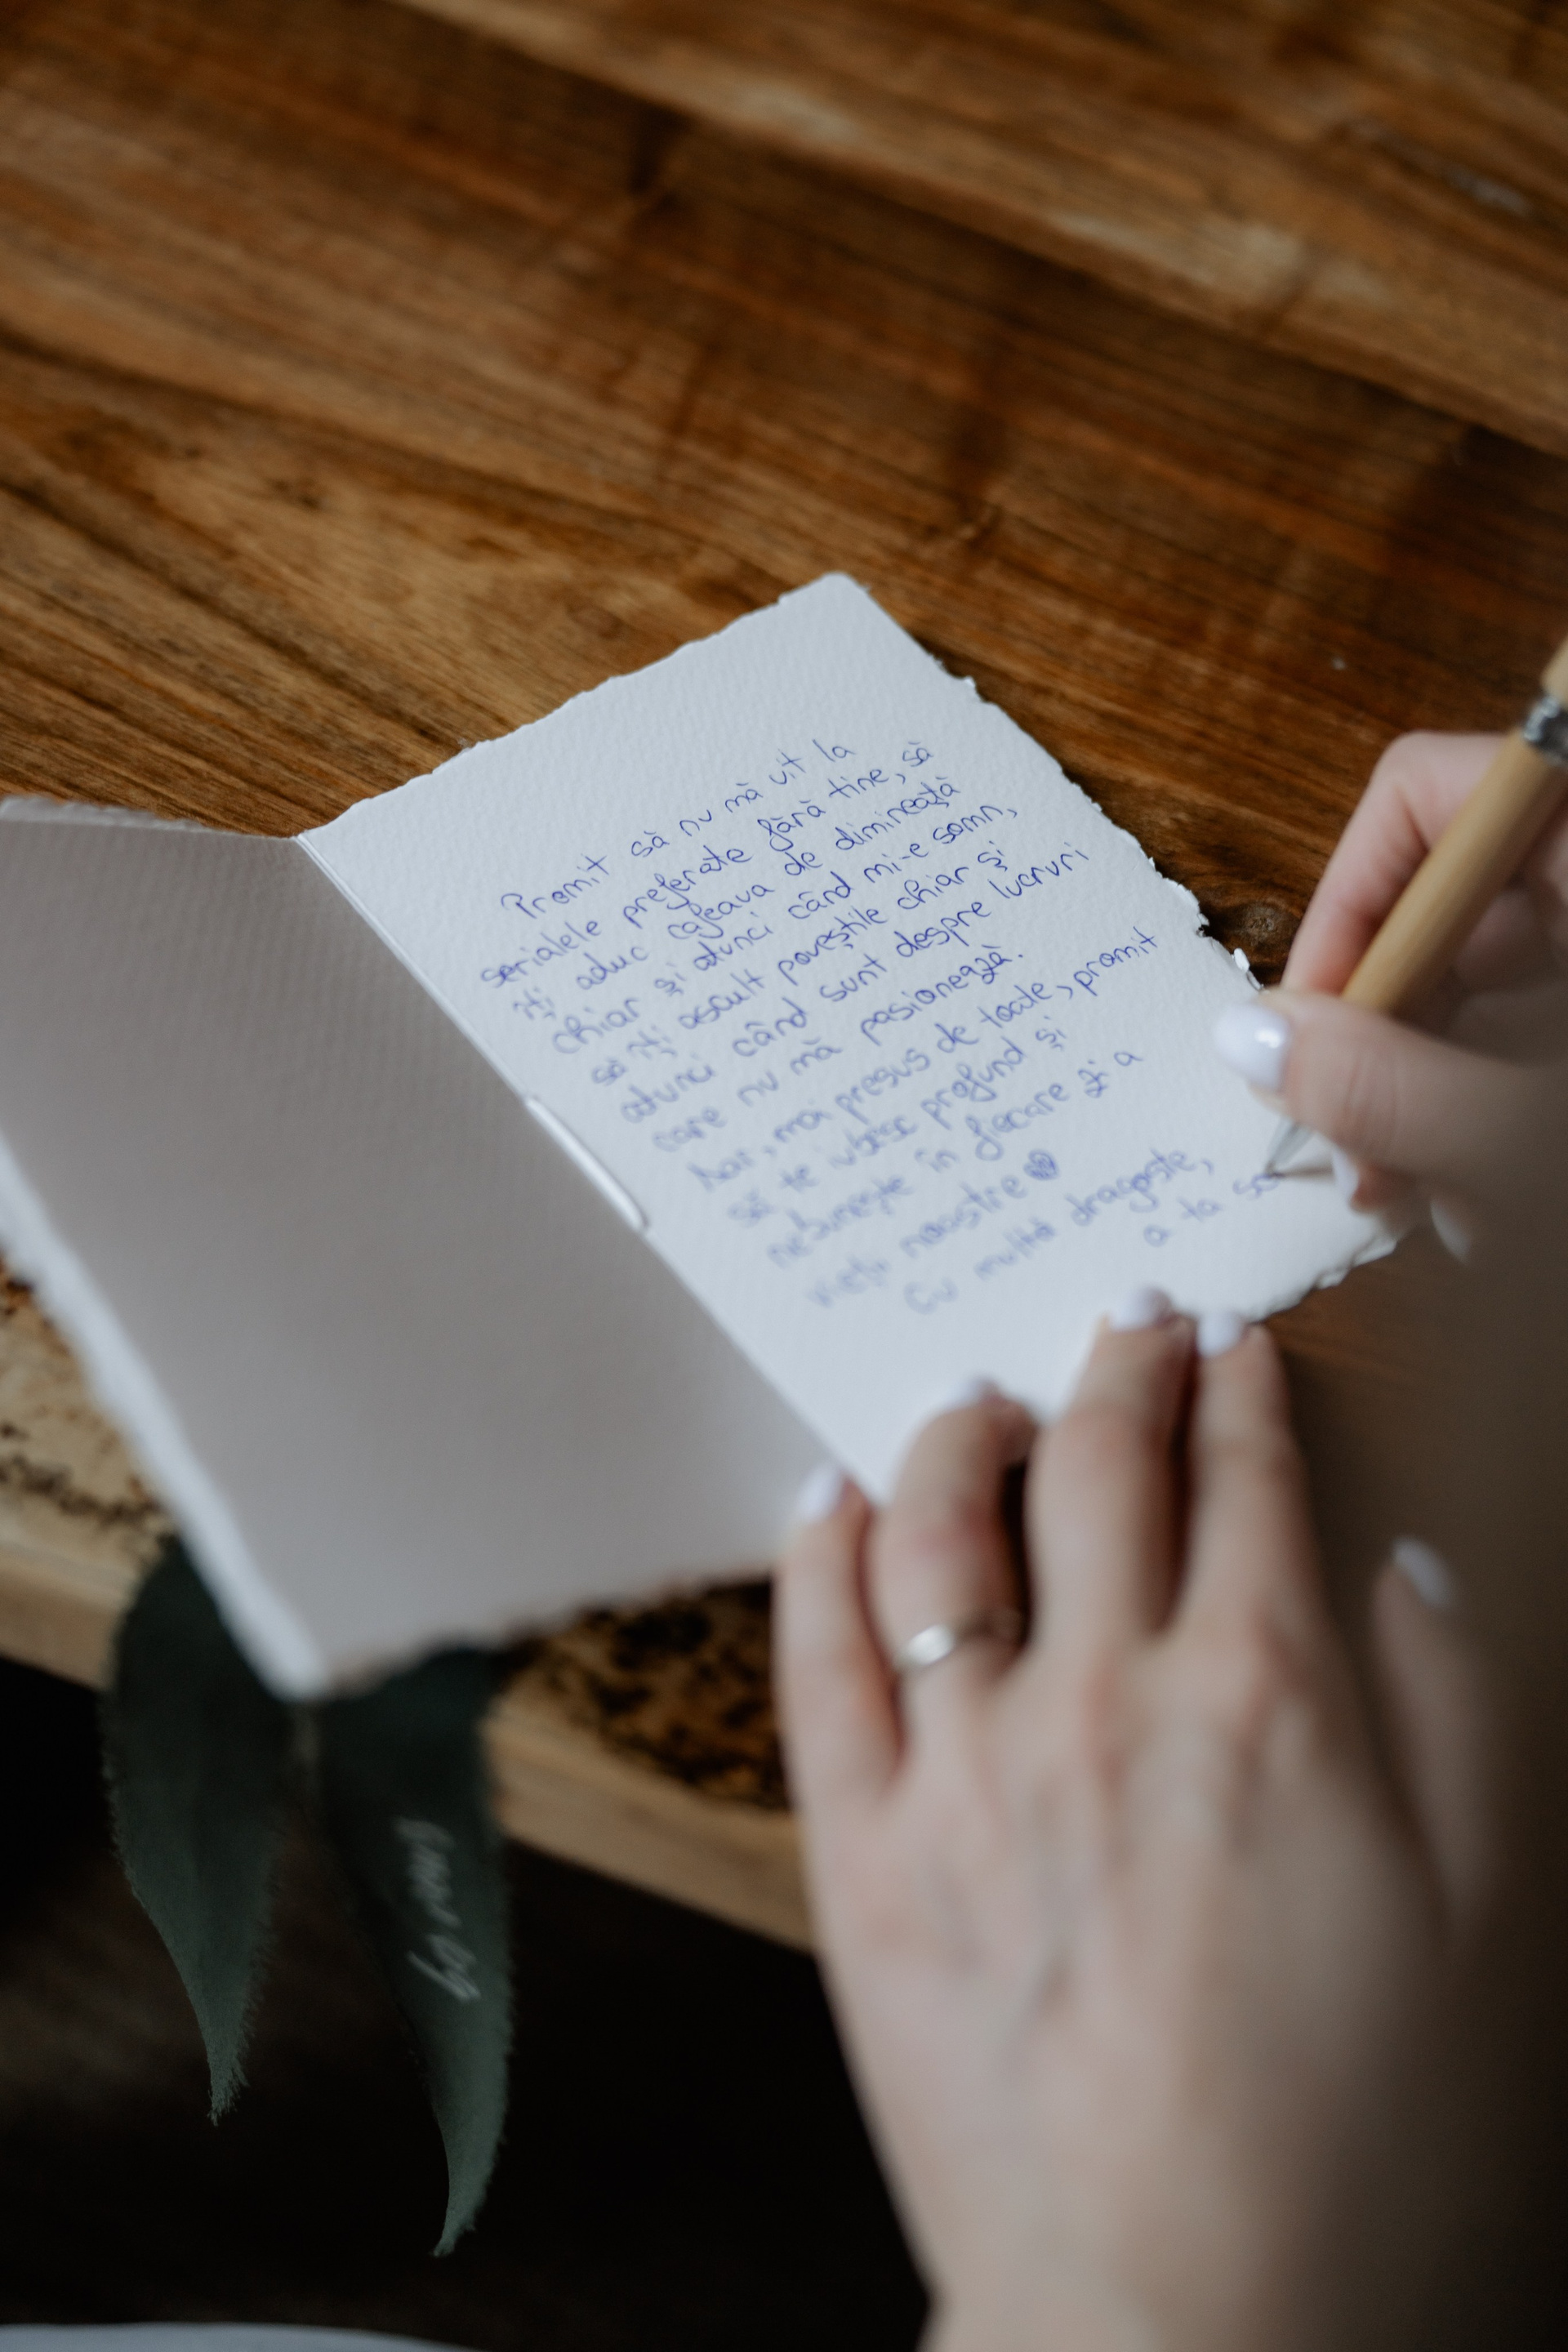 Promit să nu mă uit la
serialele preferate fără tine, să
îți aduc cafeaua de dimineață
chiar și atunci când mi-e somn,
să îți ascult poveștile chiar și
atunci când sunt despre lucruri
care nu mă pasionează.
Dar, mai presus de toate, promit
să te iubesc profund și
nebunește în fiecare zi a
vieții noastre
Cu multă dragoste,
a ta so